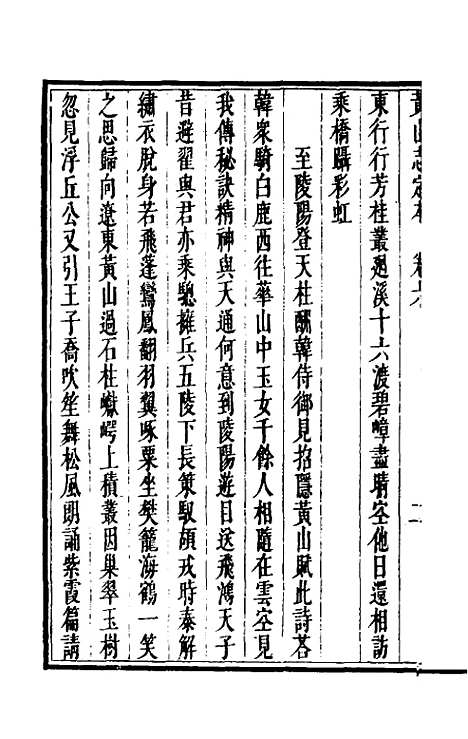 黃山志定本 卷六 二
東行行芳桂叢廻溪十六渡碧嶂盡晴空他日還相訪
乘橋躡彩虹
至陵陽登天柱酬韓侍御見招隱黃山賦此詩荅
韓衆騎白鹿西往華山中玉女千餘人相隨在雲空見
我傳秘訣精神與天通何意到陵陽遊目送飛鴻天子
昔避翟與君亦乘驄擁兵五陵下長策馭頑戎時泰解
繡衣脫身若飛蓬鸞鳳翻羽翼啄粟坐樊籠海鶴一笑
之思歸向遼東黃山過石柱巘崿上積叢因巢翠玉樹
忽見浮丘公又引王子喬吹笙舞松風朗誦紫霞篇請